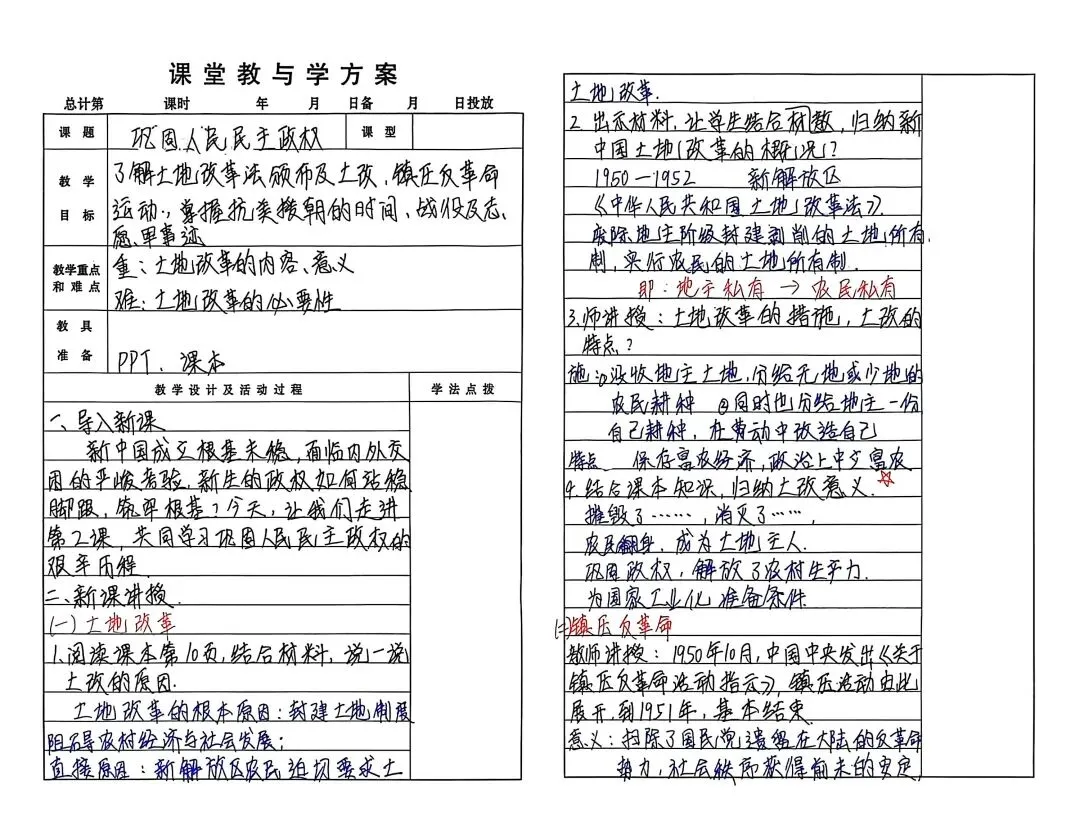 课堂教与学方案
总计第 课时 年 月 日备 月 日投放
课题 巩固人民民主政权 课型
教学目标 了解土地改革法颁布及土改、镇压反革命
运动;掌握抗美援朝的时间、战役及志
愿军事迹
教学重点和难点 重:土地改革的内容、意义
难:土地改革的必要性
教具准备 PPT、课本
教学设计及活动过程 学法点拨
一、导入新课
新中国成立根基未稳,面临内外交
困的严峻考验,新生的政权如何站稳
脚跟,筑牢根基?今天,让我们走进
第2课,共同学习巩固人民民主政权的
艰辛历程.
二、新课讲授.
(一)土地改革
1.阅读课本第10页,结合材料,说一说
土改的原因.
土地改革的根本原因:封建土地制度
阻碍农村经济与社会发展;
直接原因:新解放区农民迫切要求土
土地改革.
2.出示材料,让学生结合材数,归纳新
中国土地改革的概况?
1950—1952 新解放区
《中华人民共和国土地改革法》.
废除地主阶级封建剥削的土地所有
制,实行农民的土地所有制.
即:地主私有→农民私有
3.师讲授:土地改革的措施,土改的
特点?
施:①没收地主土地,分给无地或少地的
农民耕种 ②同时也分给地主一份
自己耕种,在劳动中改造自己
特点 保存富农经济,政治上中立富农
4.结合课本知识,归纳土改意义.☆
摧毁了……,消灭了……,
农民翻身,成为土地主人.
巩固政权,解放了农村生产力.
为国家工业化准备条件
(二)镇压反革命
教师讲授:1950年10月,中国中央发出《关于
镇压反革命活动指示》,镇压活动由此
展开,到1951年,基本结束.
意义:扫除了国民党遗留在大陆的反革命
势力,社会秩序获得前未的安定,